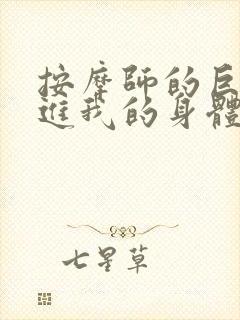 按摩師的巨
進我的身體
七星草